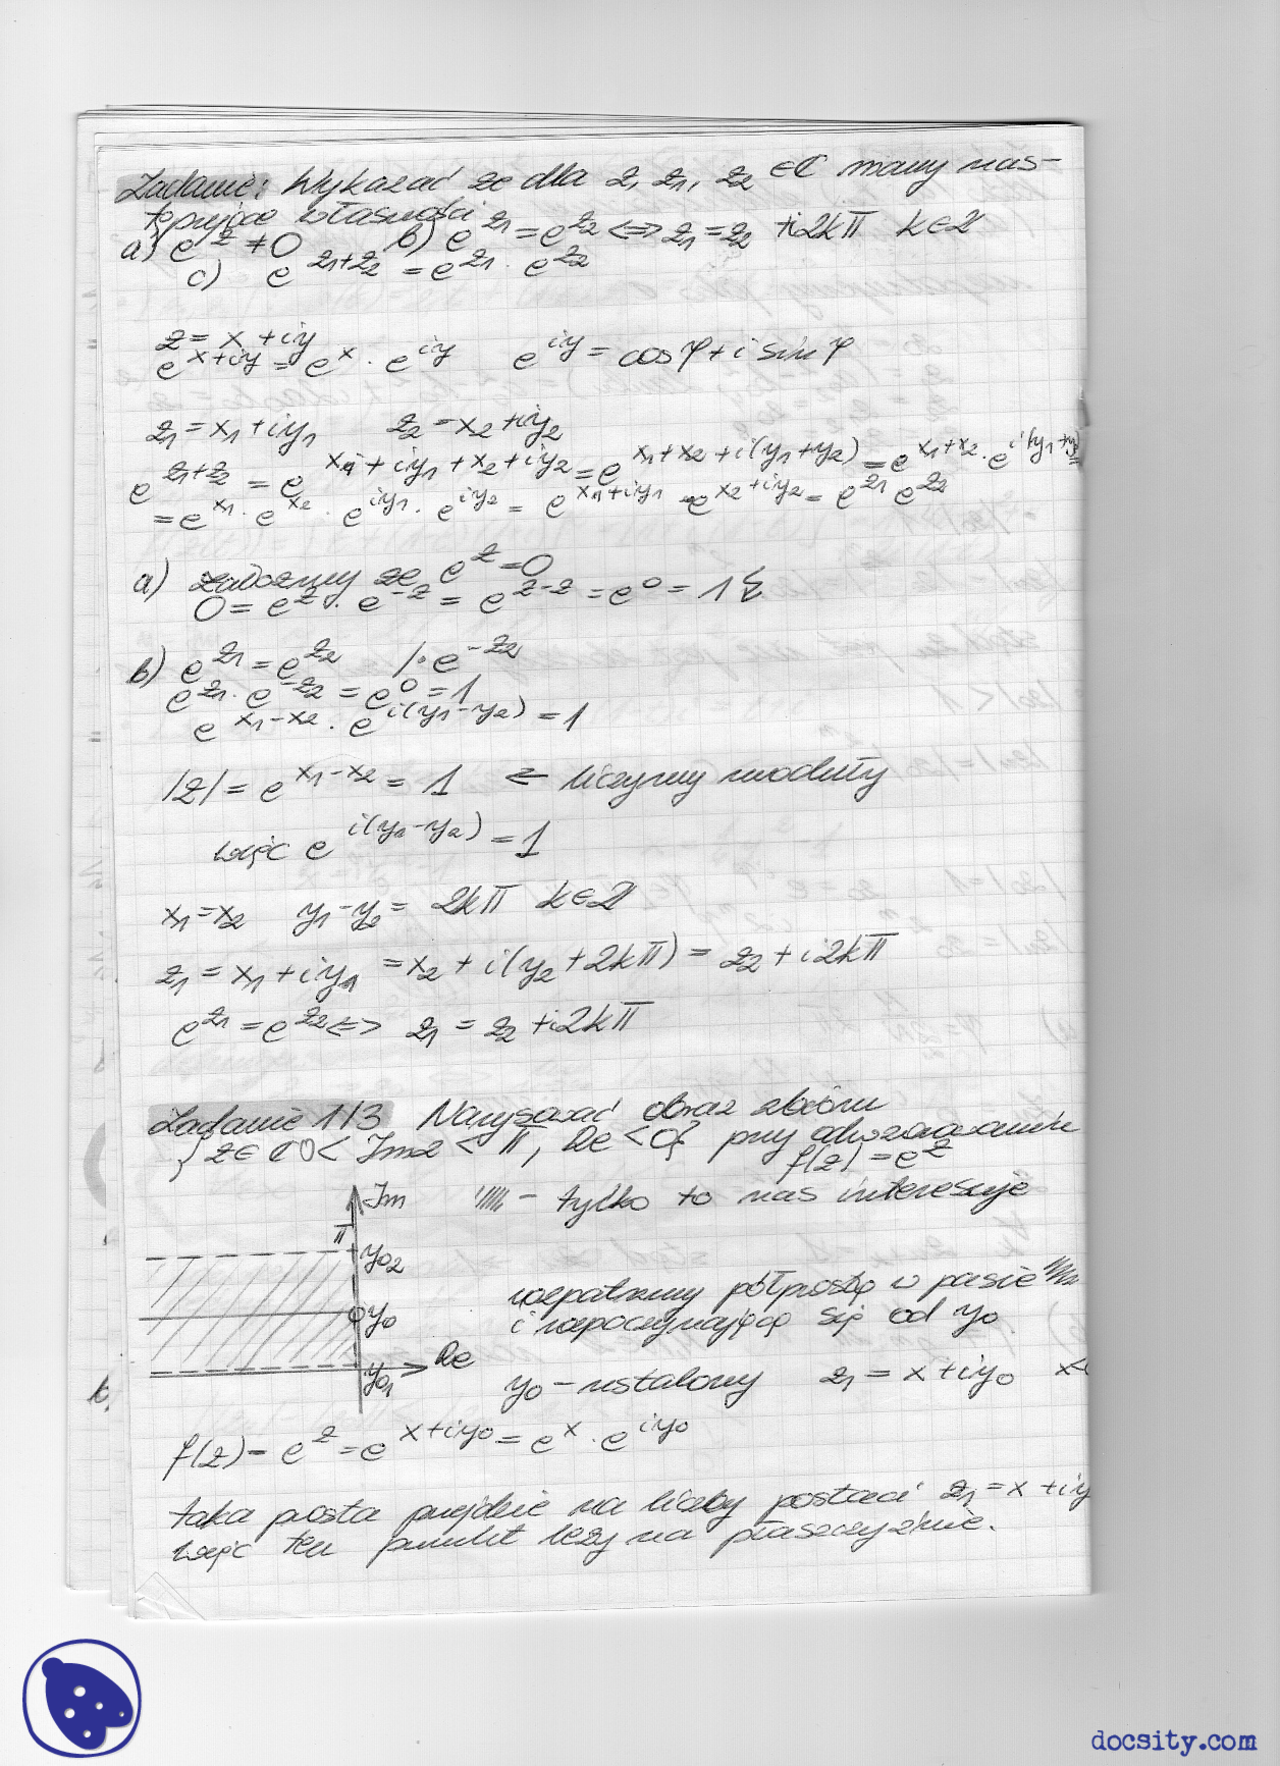 Zadanie: Wykazać ze dla z, z₁, z₂ ∈ ℂ mamy nas-
tępujące własności
a) e^z ≠ 0 b) e^z₁ = e^z₂ <=> z₁ = z₂ + i2kπ k∈ℤ
c) e^(z₁+z₂) = e^z₁ · e^z₂
z = x + iy
e^(x+iy) = e^x · e^(iy) e^(iy) = cos φ + i sin φ
z₁ = x₁ + iy₁ z₂ = x₂ + iy₂
e^(z₁+z₂) = e^(x₁+iy₁+x₂+iy₂) = e^(x₁+x₂+i(y₁+y₂)) = e^(x₁+x₂) · e^(i(y₁+y₂)) =
= e^x₁ · e^x₂ · e^(iy₁) · e^(iy₂) = e^(x₁+iy₁) · e^(x₂+iy₂) = e^z₁ e^z₂
a) załóżmy ze e^z = 0
0 = e^z · e^(-z) = e^(z-z) = e^0 = 1
b) e^z₁ = e^z₂ /· e^(-z₂)
e^z₁ · e^(-z₂) = e^0 = 1
e^(x₁-x₂) · e^(i(y₁-y₂)) = 1
|z| = e^(x₁-x₂) = 1 <= liczymy moduły
więc e^(i(y₁-y₂)) = 1
x₁ = x₂ y₁ - y₂ = 2kπ k∈ℤ
z₁ = x₁ + iy₁ = x₂ + i(y₂ + 2kπ) = z₂ + i2kπ
e^z₁ = e^z₂ <=> z₁ = z₂ + i2kπ
Zadanie 1/3 Narysować obraz zbioru
{z∈ℂ 0 < Imz < π, Re < 0} przy odwzorowaniu
f(z) = e^z
Im - tylko to nas interesuje
π
y₀₂
rozpatrzmy półprostą w pasie
y₀ i rozpoczynającą się od y₀
Re
y₀₁ y₀ - ustalony z₁ = x + iy₀ x<
f(z) = e^z = e^(x+iy₀) = e^x · e^(iy₀)
taka prosta przejdzie na liczby postaci z₁ = x + iy
więc ten punkt leży na płaszczyźnie.
docsity.com